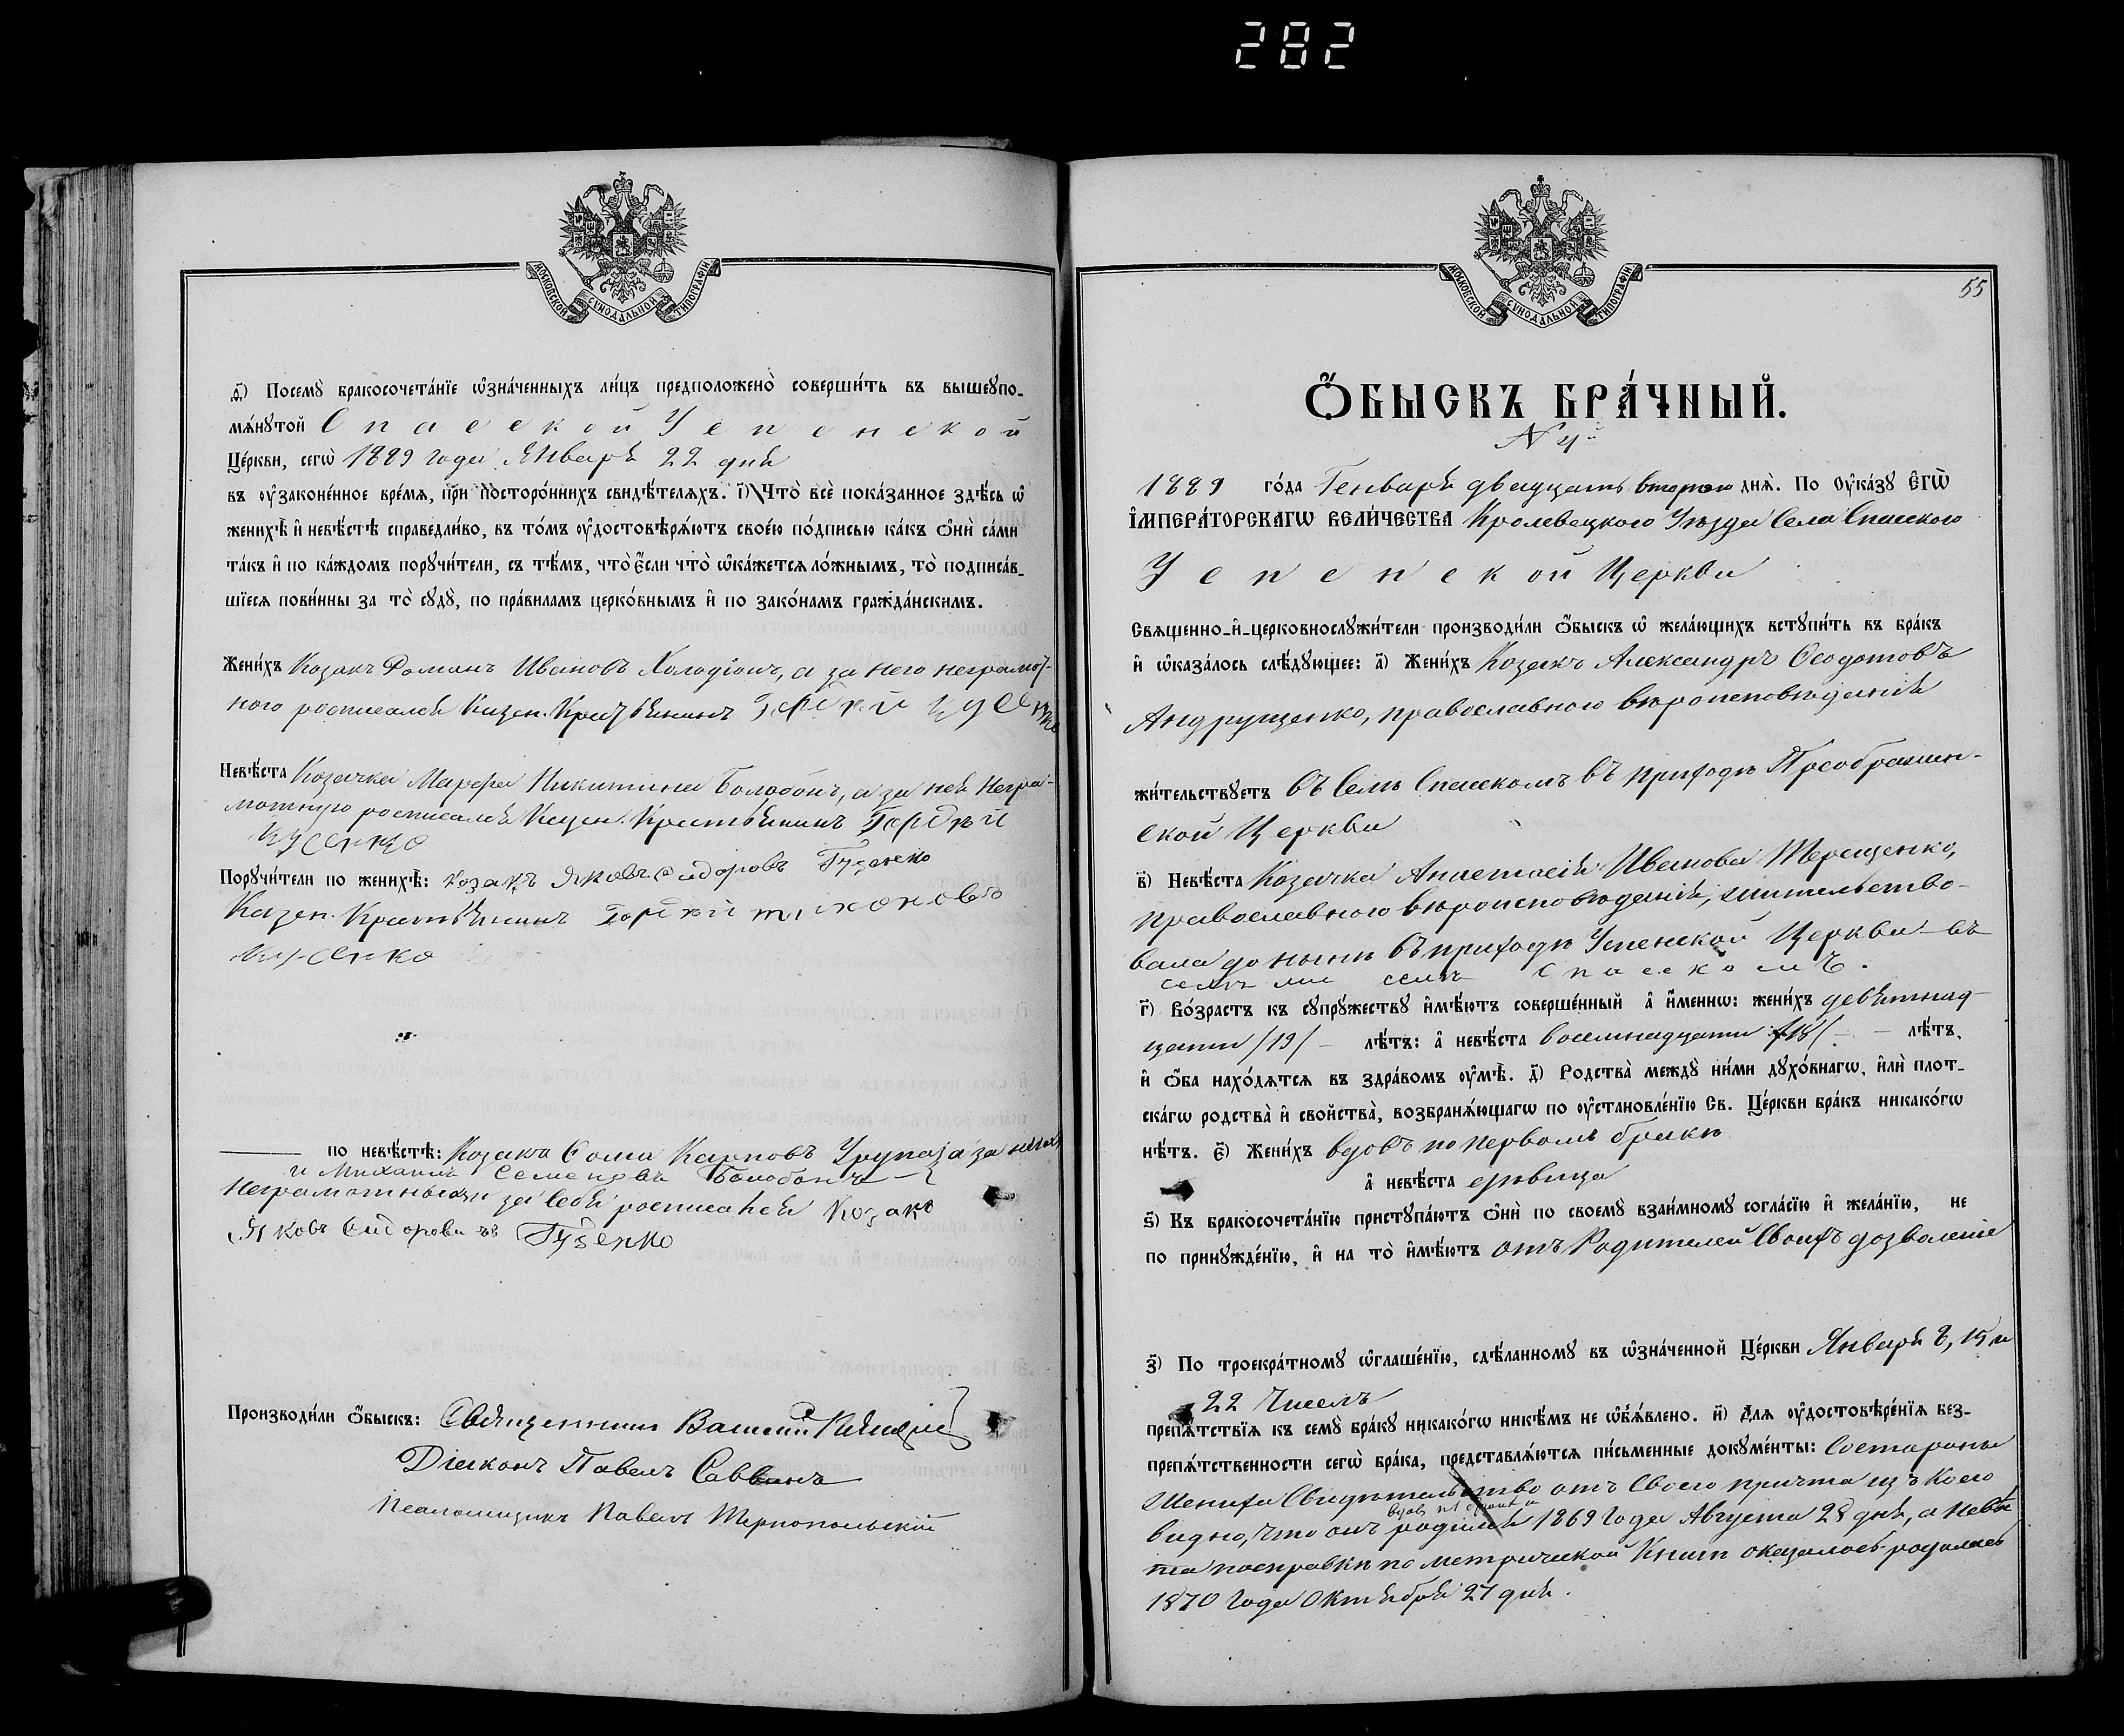 282
МОСКОВСКОЙ СѴНОДАЛЬНОЙ ТИПОГРАФІИ
д҃і) Посемꙋ бракосочета́нїе ѡ҆зна́ченныхъ ли́цъ предположено̀ соверши́ть въ вышеꙋпо-
мѧ́нꙋтой Спасской Успенской
Це́ркви, сегѡ̀ 1889 года Январѣ 22 днѣ
въ ᲂу҆законе́нное вре́мѧ, при посторо́ннихъ свидѣ́телѧхъ. і҃) Что̀ всѐ пока́занное здѣ́сь ѡ҆
женихѣ̀ и҆ невѣ́стѣ справедли́во, въ то́мъ ᲂу҆достовѣрѧ́ютъ свое́ю по́дписью ка́къ ѻ҆нѝ са́ми
та́къ и҆ по ка́ждомъ порꙋчи́тели, съ тѣ́мъ, что̀ є҆́сли что̀ ѡ҆ка́жетсѧ ло́жнымъ, то̀ подписа́в-
шїесѧ пови́нны за то̀ сꙋдꙋ̀, по пра́виламъ церко́внымъ и҆ по зако́намъ гражда́нскимъ.
Жени́хъ Козакъ Романъ Ивановъ Холодіонъ, а за него неграмот-
ного росписался Казен. Крестьянинъ Гордѣй
Невѣ́ста Козачка Марфа НикитинаБолобонъ, а за нея негра-
мотную росписался Казен. Крестьянинъ Гордѣй
Порꙋчи́тели по женихѣ̀: козакъ Яковъ Сидоровъ Гузенко
Казен. Крестьянинъ Гордѣй тихоновъ
по невѣ́стѣ: Козакъ Сома Карповъ а за нихъ
и Михаилъ Семеновъ Болобонъ
неграмотныхъ и за себя росписался Козакъ
Яковъ Сидоровичъ Гузенко
Производи́ли ѻ҆́быскъ: Священникъ Василій
Діаконъ Павелъ Саввинъ
Псаломщикъ Павелъ Тернопольскій
МОСКОВСКОЙ СѴНОДАЛЬНОЙ ТИПОГРАФІИ
55
Ѻ҆́БЫСКЪ БРА́ЧНЫЙ.
N 4й
1889 го́да Генваря двадцать второго днѧ̀. По ᲂу҆ка́зꙋ Є҆ГѠ̀
І҆МПЕРА́ТОРСКАГѠ ВЕЛИ́ЧЕСТВА Кролевецкого Уѣзда Села Спасского
Успенской Церкви
Свѧщенно-и҆-церковнослꙋжи́тели производи́ли ѻ҆́быскъ ѡ҆ жела́ющихъ встꙋпи́ть въ бра́къ
и҆ ѡ҆каза́лось слѣ́дꙋющее: а҃) Жени́хъ Козакъ Александръ Ѳеодотовъ
Андрущенко, православного вѣроисповѣданія
жи́тельствꙋетъ въ Селѣ Спасскомъ въ приходѣ Преображен-
ской Церкви
в҃) Невѣ́ста Козачка Анастасія Иванова Терещенко,
православного вѣроисповѣданія, жительство-
вала до нынѣ въ приходѣ Успенской Церкви въ
семъ же селѣ Спасскомъ.
г҃) Во́зрастъ къ сꙋпрꙋ́жествꙋ и҆мѣ́ютъ соверше́нный а҆ и҆́меннѡ: жени́хъ девятнад-
цати /19/ лѣ́тъ: а҆ невѣ́ста восемнадцати /18/ лѣ́тъ,
и҆ ѻ҆́ба нахо́дѧтсѧ въ здра́вомъ ᲂу҆мѣ̀. д҃) Родства̀ междꙋ̀ ни́ми дꙋхо́внагѡ, и҆лѝ плот-
ска́гѡ родства̀ и҆ свойства̀, возбранѧ́ющагѡ по ᲂу҆становле́нїю Св. Це́ркви бра́къ никако́гѡ
нѣ́тъ. є҃) Жени́хъ вдовъ по первомъ бракѣ
а҆ невѣ́ста дѣвица
ѕ҃) Къ бракосочета́нїю пристꙋпа́ютъ ѻ҆нѝ по своемꙋ̀ взаи́мномꙋ согла́сїю и҆ жела́нїю, не
по принꙋжде́нїю, и҆ на то̀ и҆мѣ́ютъ отъ Родителей Своихъ дозволеніе
з҃) По троекра́тномꙋ ѡ҆глаше́нїю, сдѣ́ланномꙋ въ ѡ҆зна́ченной Це́ркви Январѣ 8, 15 и
22 Числъ
препѧ́тствїѧ къ семꙋ̀ бра́кꙋ никако́гѡ никѣ́мъ не ѡ҆б̾ѧ́влено. и҃) Длѧ ᲂу҆достовѣре́нїѧ без-
препѧ́тственности сегѡ̀ бра́ка, представлѧ́ютсѧ пи́сьменные докꙋме́нты: Состороны
Жениха Свидѣтельство отъ Своего причта изъ коего
видно, что онъ родился 1869 года Августа 28 дня, а невѣс-
та посправкѣ по метрической Книгѣ оказалось родилась
1870 года Октября 27 дня.